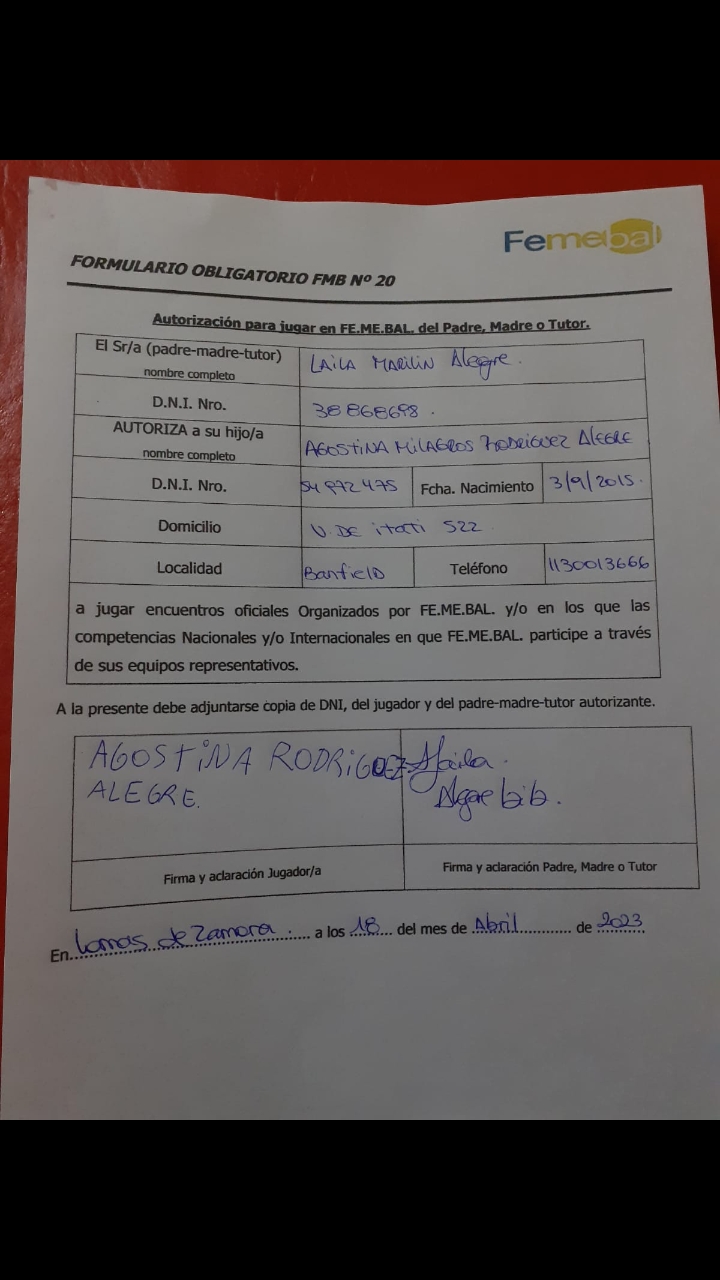 Femebal
FORMULARIO OBLIGATORIO FMB Nº 20
Autorización para jugar en FE.ME.BAL. del Padre, Madre o Tutor.
El Sr/a (padre-madre-tutor)
nombre completo
LAILA MARILIN Alegre.
D.N.I. Nro.
38868698.
AUTORIZA a su hijo/a
nombre completo
AGOSTINA MILAGROS RODRIGUEZ ALEGRE
D.N.I. Nro.
54972475
Fcha. Nacimiento
3/9/2015.
Domicilio
V. DE itati 522
Localidad
Banfield
Teléfono
1130013666
a jugar encuentros oficiales Organizados por FE.ME.BAL. y/o en los que las
competencias Nacionales y/o Internacionales en que FE.ME.BAL. participe a través
de sus equipos representativos.
A la presente debe adjuntarse copia de DNI, del jugador y del padre-madre-tutor autorizante.
AGOSTINA RODRIGUEZ
ALEGRE.
Laila.
Firma y aclaración Jugador/a
Firma y aclaración Padre, Madre o Tutor
En Lomas de Zamora a los 18 del mes de Abril de 2023